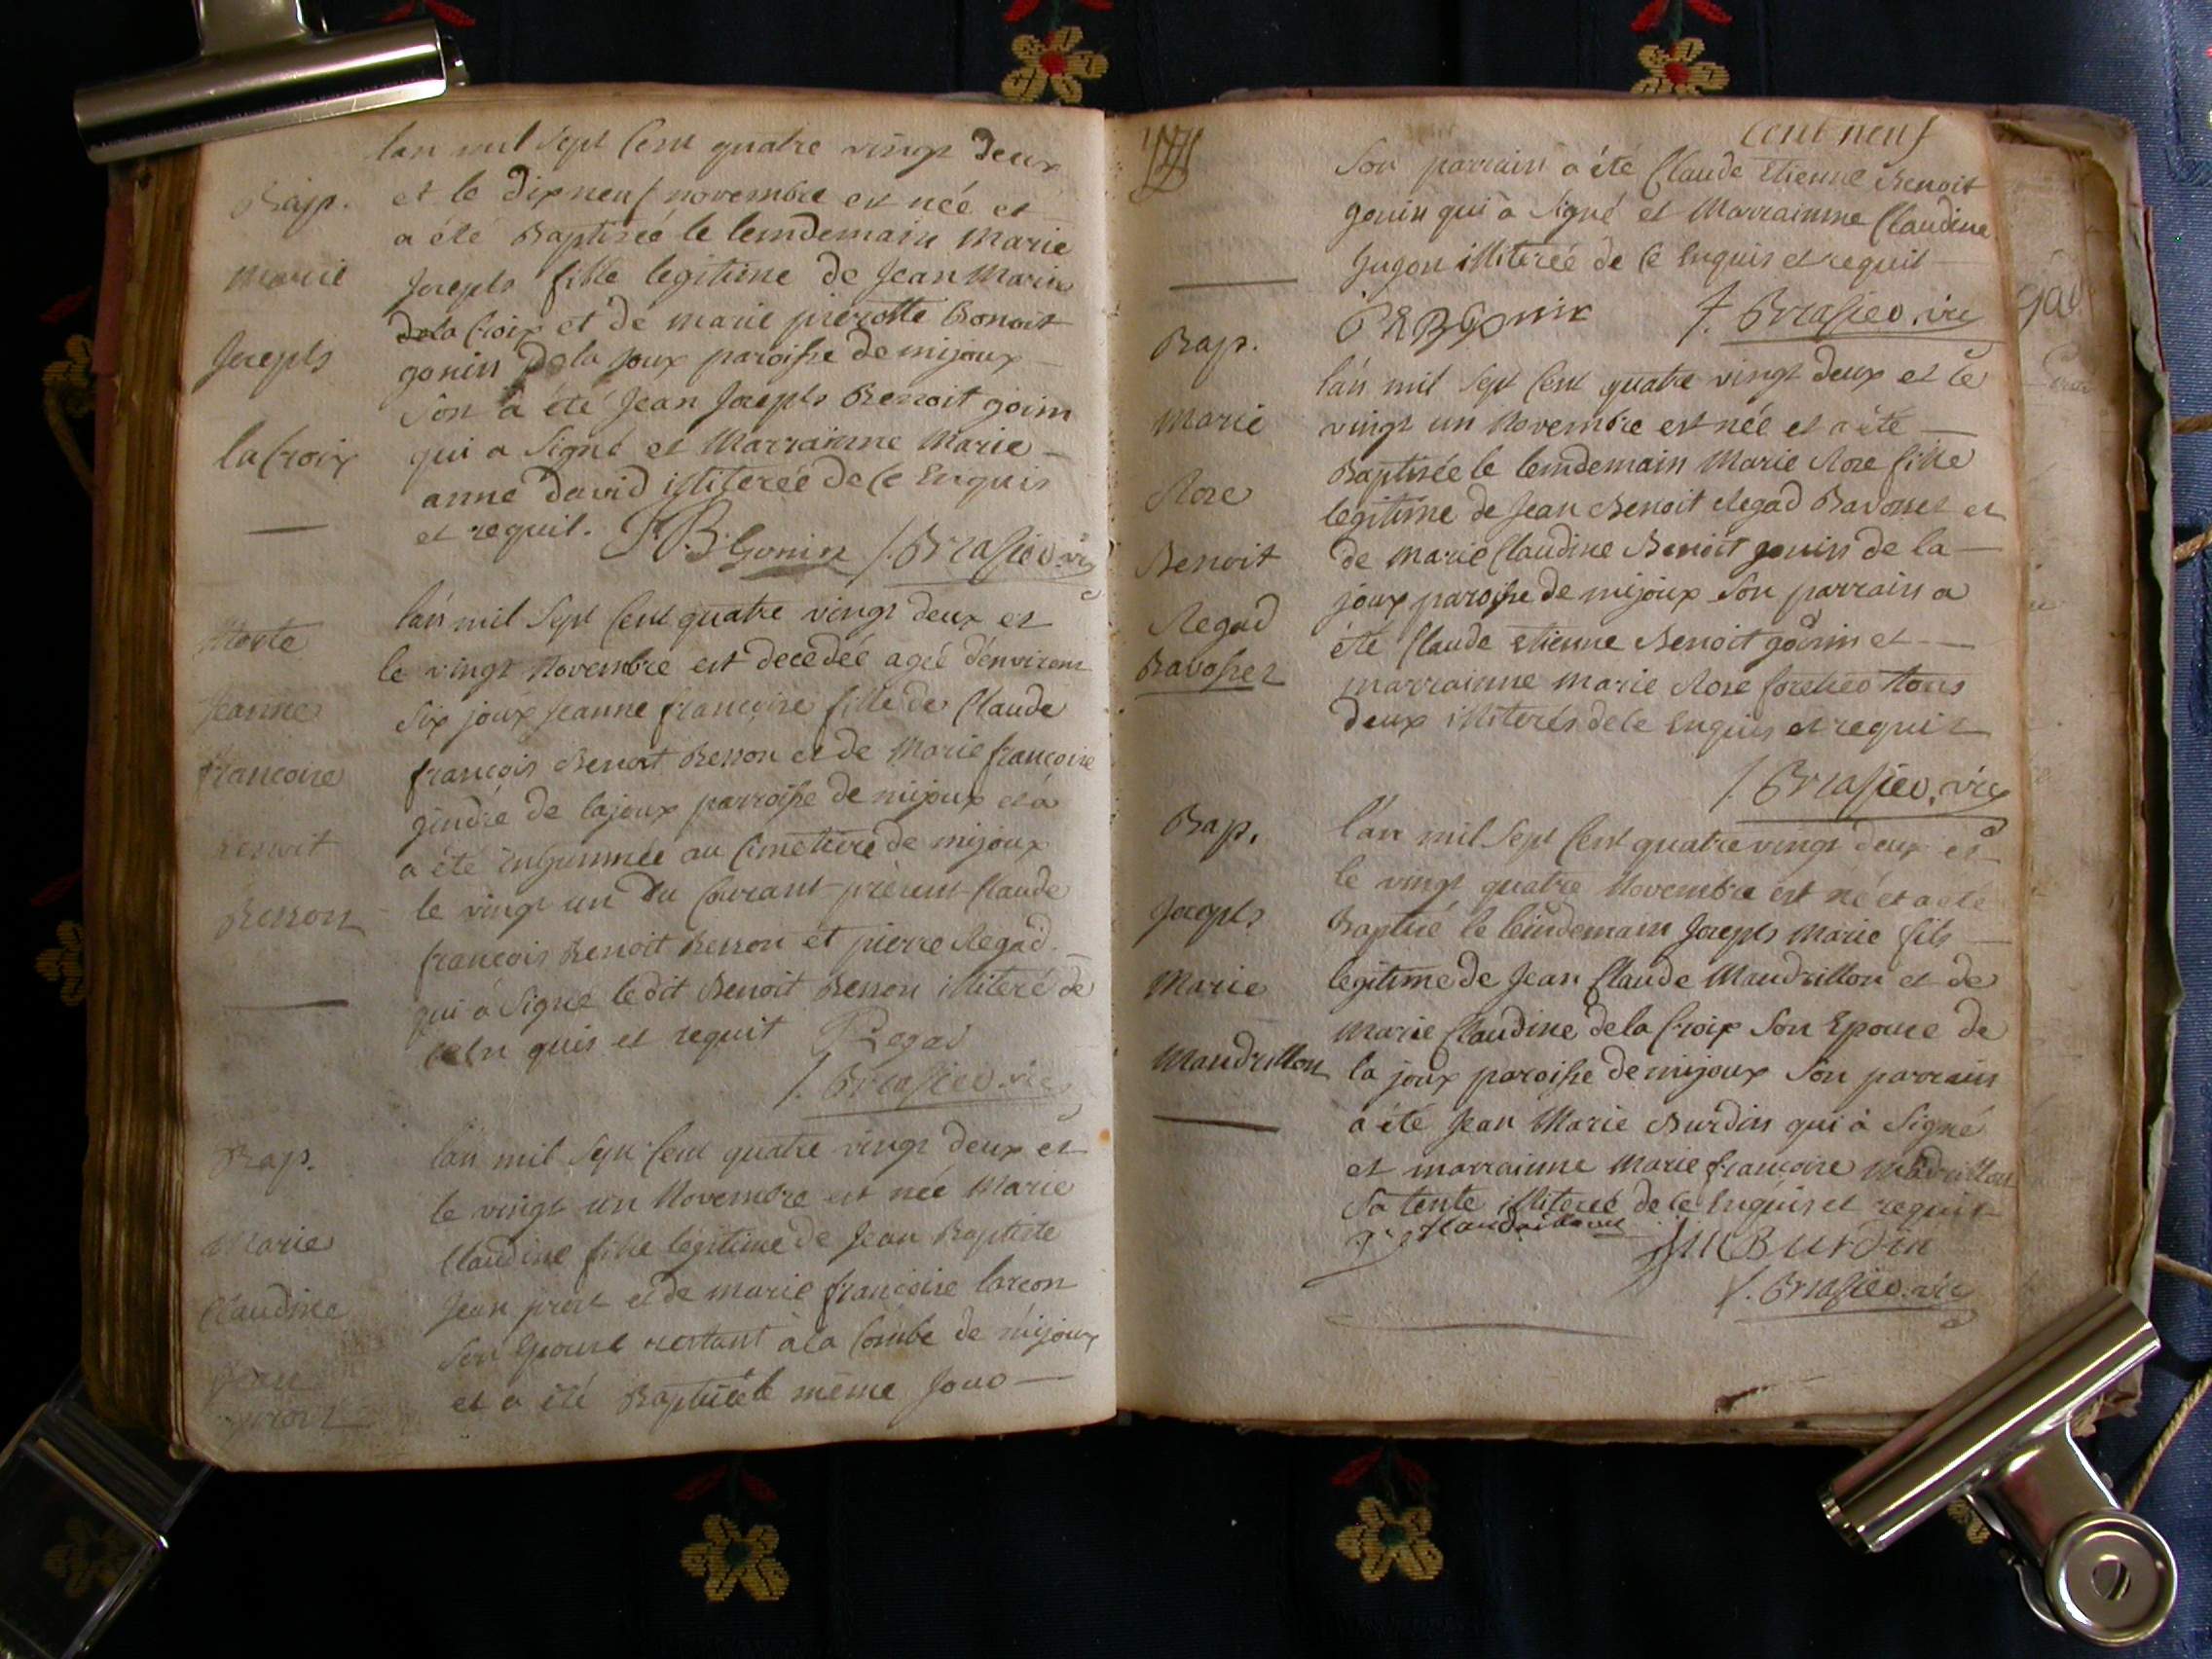 lan mil sept Cent quatre vingt deux
Bap. et le dixneuf novembre est née et
a été Baptisée le lemdemain Marie
Marie Joseph fille legitime de Jean Marie
dela Croix et de marie pierotte Benoit
Joseph gonin De la Joux paroisse de mijoux
Son a été Jean Joseph Benoit goim
la Croix qui a Signé et Marrainne Marie
anne David illiterée de Ce Enquis
et requit. JB Gonin f. Brasier vic
lan mil Sept Cent quatre vingt deux et
Morte le vingt Novembre est decedée ageé d'environ
Jeanne Six jours Jeanne françoise fille de Claude
francoise françois Benoit Besson et de Marie françoise
gindre de lajoux parroisse de mijoux et a
Benoit a été inhummée au Cimetiere de mijoux
Besson le vingt un Du Courant présent Claude
françois Benoit Besson et pierre Regad
qui a Signé ledit Benoit Besson illiteré de
quis et requit P Regad
f. Brasier vic
Bap. lan mil Sept Cent quatre vingt deux et
le vingt un Novembre est née Marie
Marie Claudine fille légitime de Jean Baptiste
Claudine Jean prost et de marie françoise larcon
Jean Son Epouse restant à la Combe de mijoux
prost et a été Baptisée le même Jour
Cent neuf
Son parrain a été Claude Etienne Benoit
gonin qui a Signé et Marrainne Claudine
Gugon illiterée de Ce Enquis et requit
f. Brasier vic
Bap. lan mil Sept Cent quatre vingt deux et le
Marie vingt un Novembre est née et a été
Baptisée le lemdemain Marie Rose fille
Rose legitime de Jean Benoit Regad Bavosset et
Benoit de Marie Claudine Benoit gonin de la
joux paroisse de mijoux Son parrain a
Regad été Claude Etienne Benoit gonin et
Bavosset marrainne Marie Rose tous
deux illiterés de Ce Enquis et requit
f. Brasier, vic
Bap. l'an mil Sept Cent quatre vingt deux et
le vingt quatre Novembre est né et a été
Joseph Baptisé le leindemain Joseph Marie fils
Marie legitime de Jean Claude Maudrillon et de
Marie Claudine dela Croix Son Epouse de
Maudrillon la joux paroisse de mijoux Son parrain
a été Jean Marie Burdin qui a Signé
et marrainne Marie françoise Madrillon
Sa tente illiterée de Ce Enquis et requit
Maudrillon JM Burdin
f. Brasier. vic